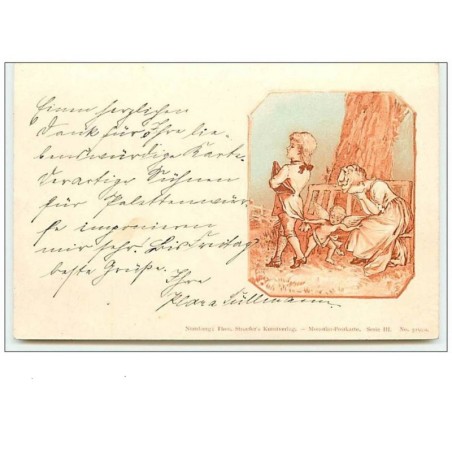 Einen herzlichen
Dank für Ihre lie-
benswürdige Karte.
Derartige Sühnen
für Palettenwür-
fe imponieren
mir sehr. Bis Freitag
beste Grüße.
Ihre
Klara Füllmann.
Nürnberg; Theo. Stroefer's Kunstverlag. – Postkarte, Serie III. No.